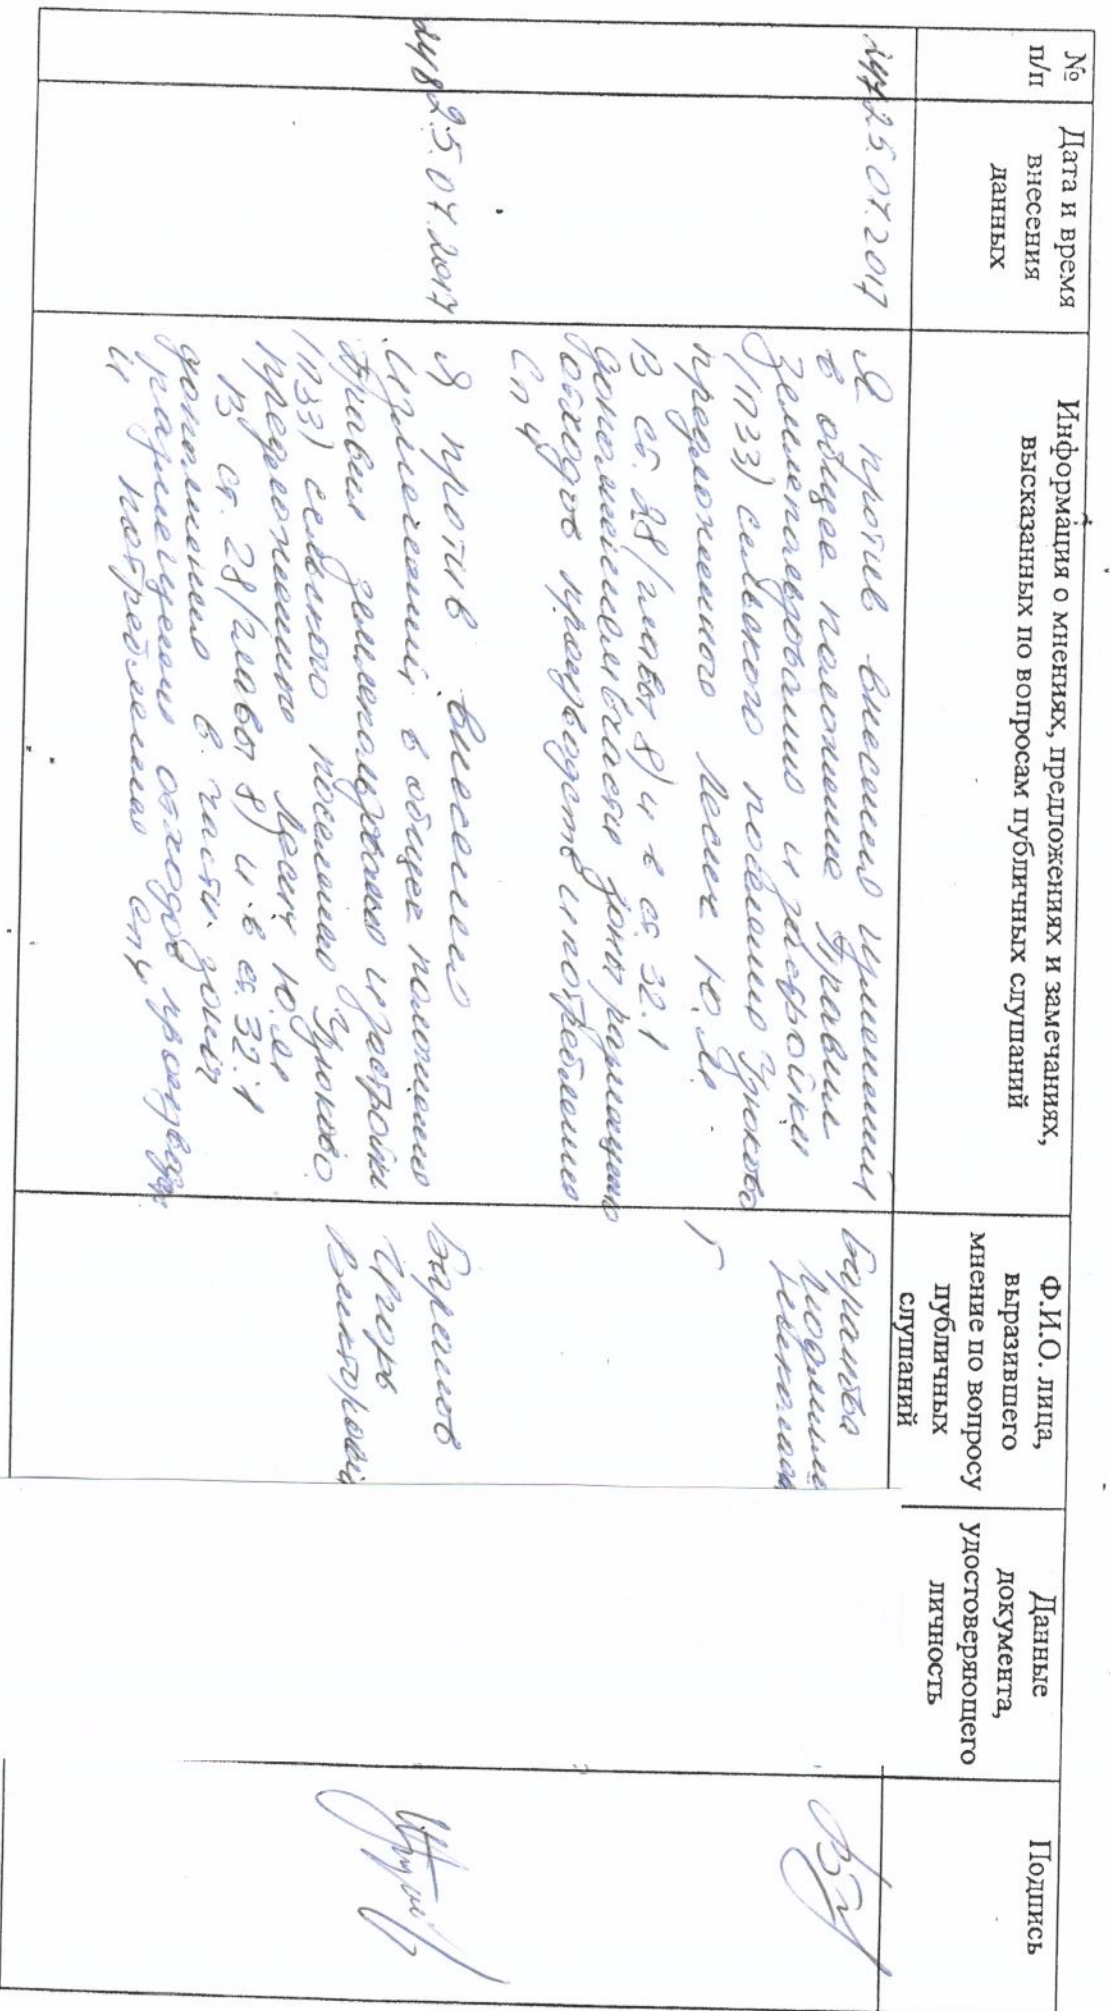 №
п/п
Дата и время
внесения
данных
Информация о мнениях, предложениях и замечаниях,
высказанных по вопросам публичных слушаний
Ф.И.О. лица,
выразившего
мнение по вопросу
публичных
слушаний
Данные
документа,
удостоверяющего
личность
Подпись
247
25.07.2017
Я против внесения изменений
в общее положение Правил
Землепользования и застройки
(ПЗЗ) сельского поселения Узюково
предложенного Лесик Ю.М.
В ст. 28 (главы 8) и в ст 32.1
дополнительно части зоны размещению
отходов производств и потребления
Сп4
Баранова
Людмила
248
25.07.2017
Я против внесения
изменений в общее положения
Правил землепользования и застройки
(ПЗЗ) сельского поселения Узюково
предложенного Лесик Ю.М
В ст. 28 (главы 8) и в ст. 32.1
дополнения в части зоны
размещения отходов производств
и потребления Сп4
Баранов
Игорь
Викторович